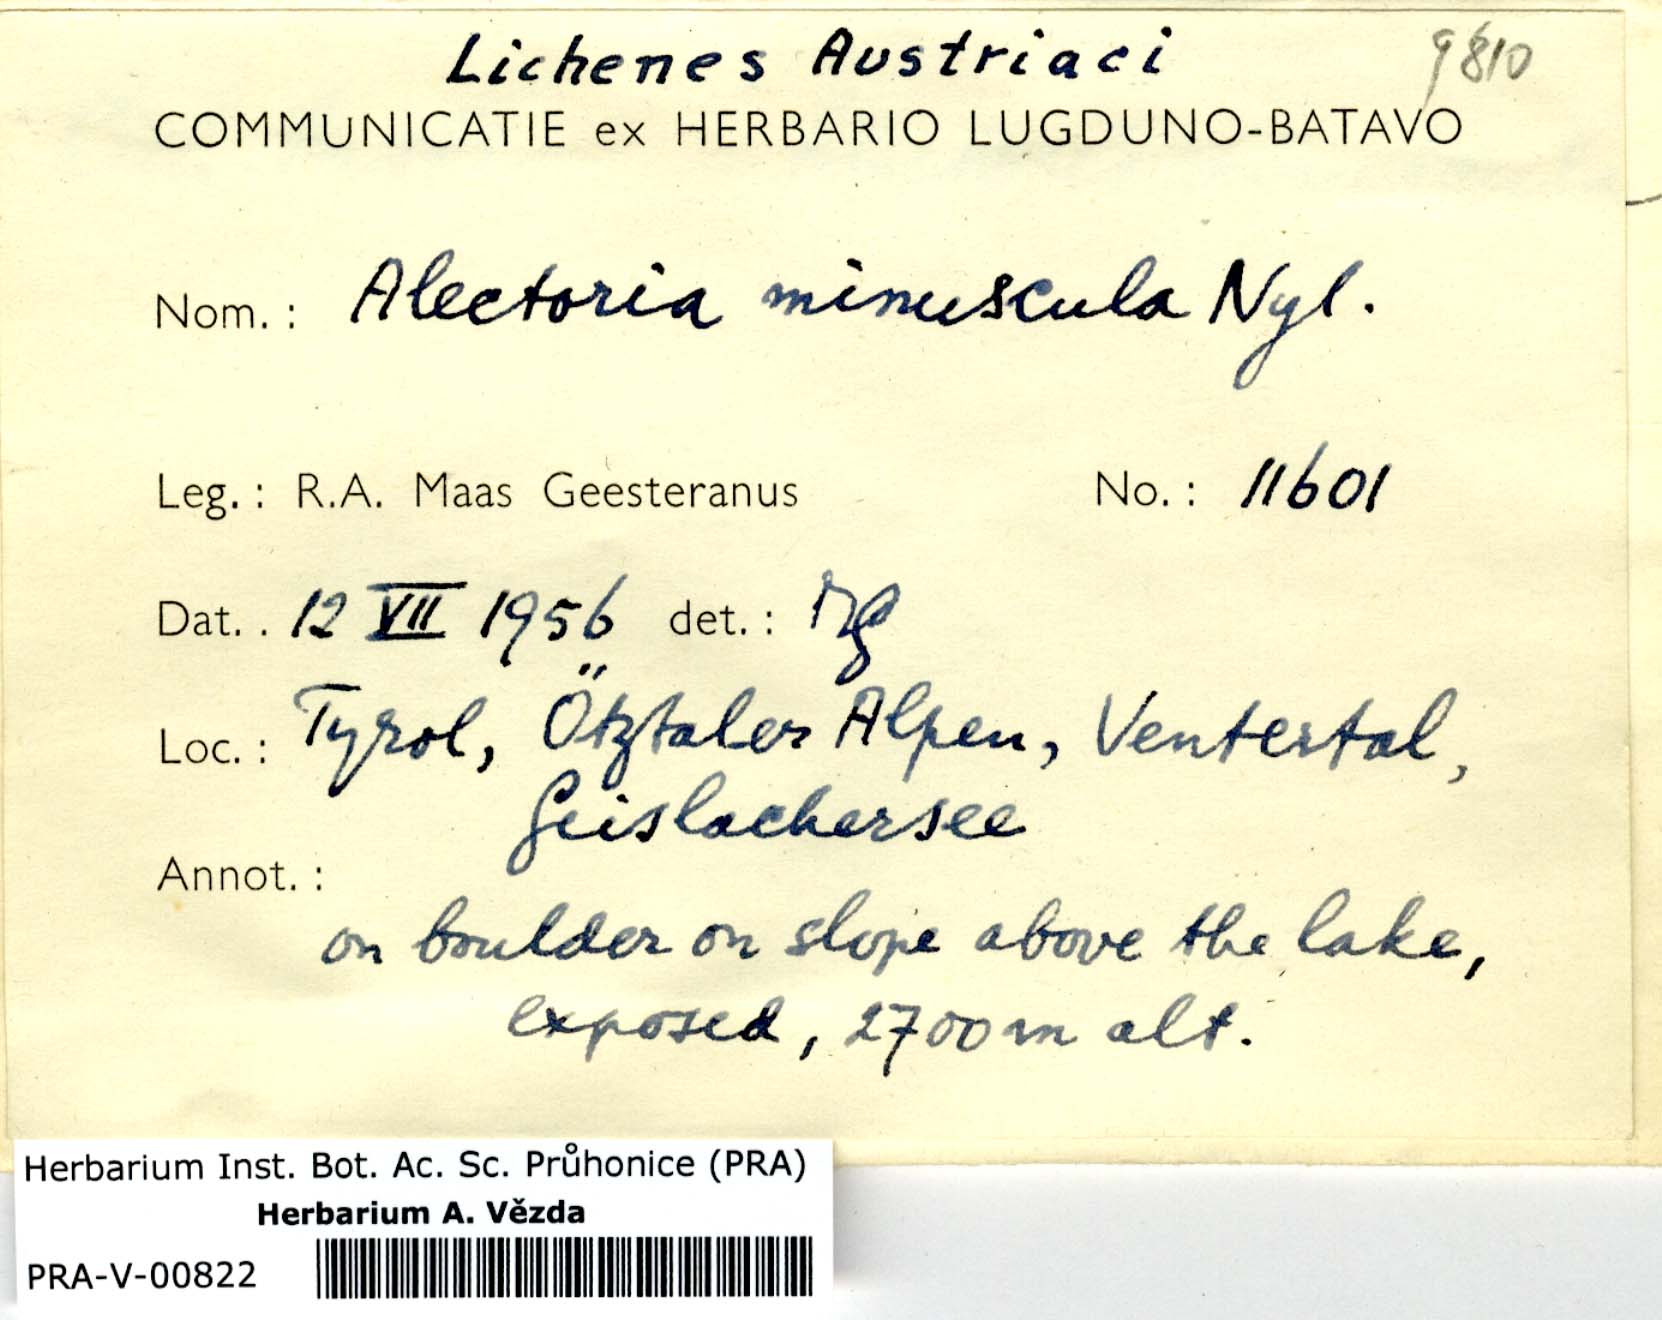 Lichenes Austriaci 9810
COMMUNICATIE ex HERBARIO LUGDUNO-BATAVO
Nom. : Alectoria minuscula Nyl.
Leg. : R.A. Maas Geesteranus No. : 11601
Dat. . 12 VII 1956 det. :
Loc. : Tyrol, Ötztaler Alpen, Ventertal,
Geislachersee
Annot. :
on boulder on slope above the lake,
exposed, 2700 m alt.
Herbarium Inst. Bot. Ac. Sc. Průhonice (PRA)
Herbarium A. Vězda
PRA-V-00822